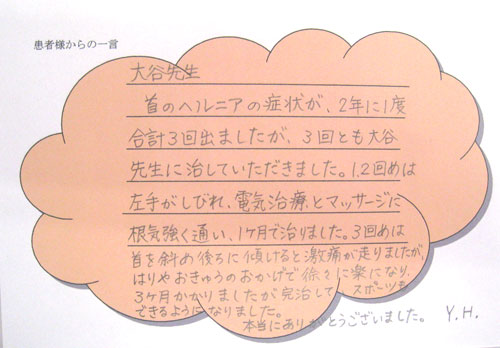 患者様からの一言
大谷先生
首のヘルニアの症状が、2年に1度
合計3回出ましたが、3回とも大谷
先生に治していただきました。1.2回めは
左手がしびれ、電気治療とマッサージに
根気強く通い、1ヶ月で治りました。3回めは
首を斜め後ろに傾けると激痛が走りましたが、
はりやおきゅうのおかげで徐々に楽になり、
3ヶ月かかりましたが完治して スポーツも
できるようになりました。
本当にありがとうございました。 Y.H.